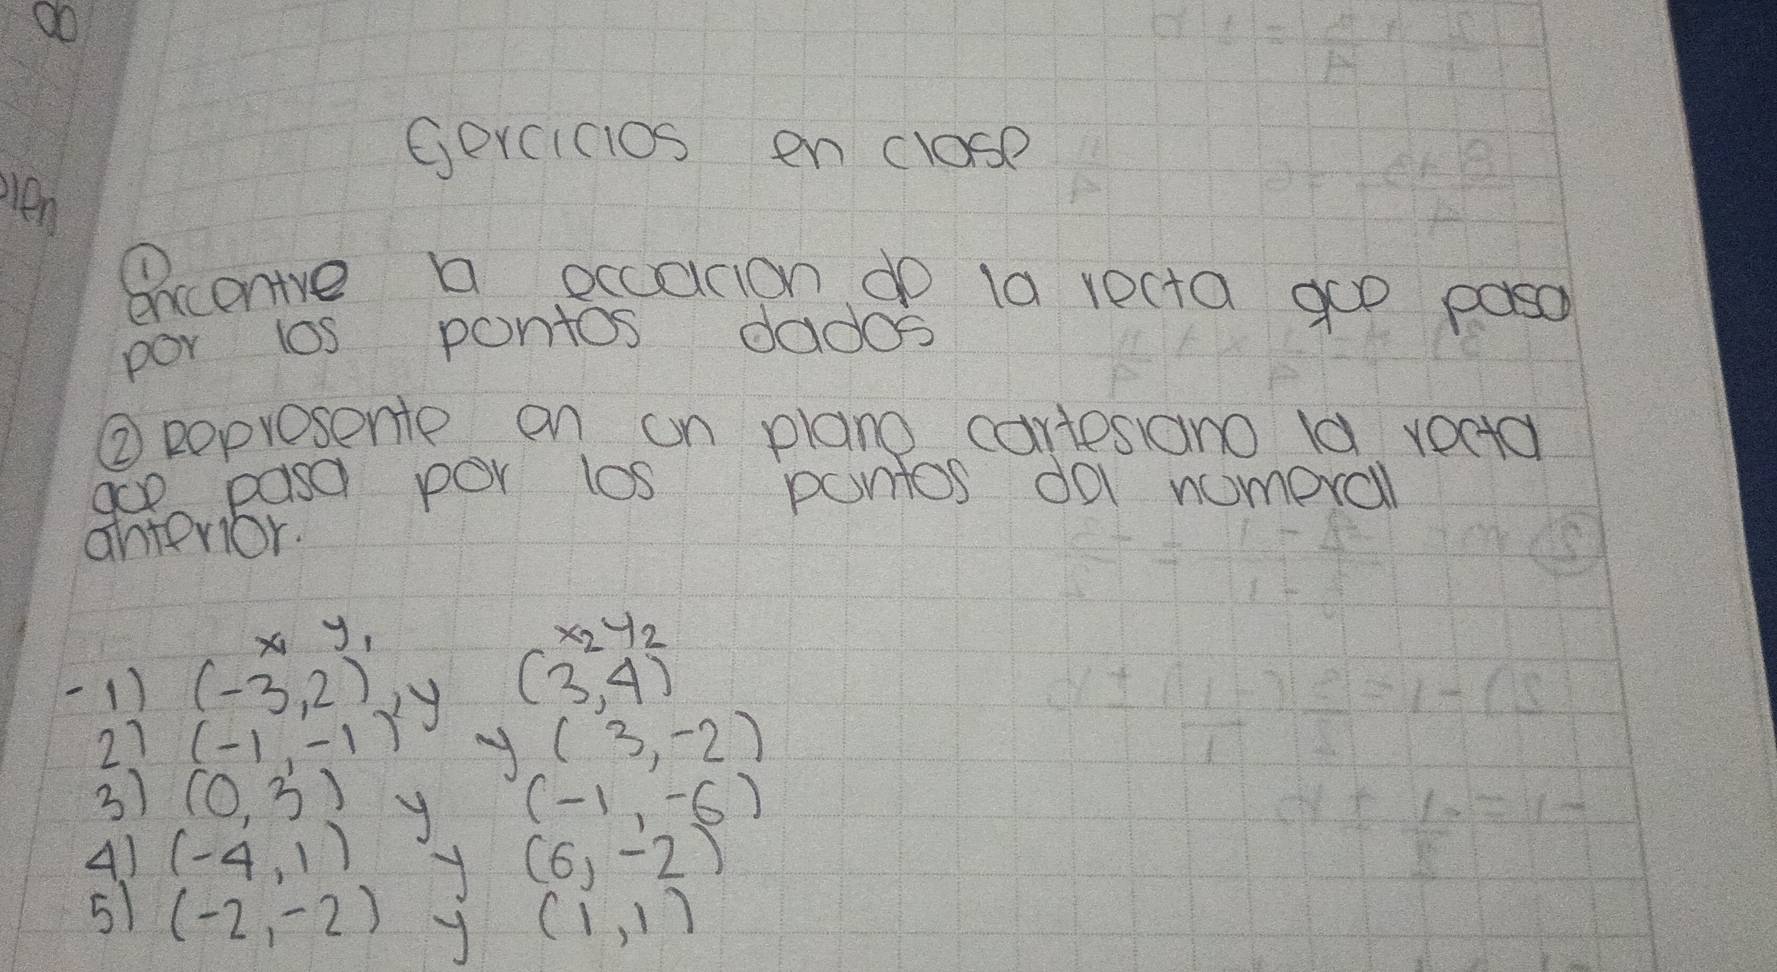 Ejercicios en clase
① encontre la ecuacion de la recta que pasa
por los pontos dados
② Represente en un plano cartesiano la recta
que pasa por los puntos del numeral
anterior.
x₁ y₁ x₂ y₂
-1) (-3,2) y (3,4)
2) (-1,-1) y (3,-2)
3) (0,3) y (-1,-6)
4) (-4,1) y (6,-2)
5) (-2,-2) y (1,1)